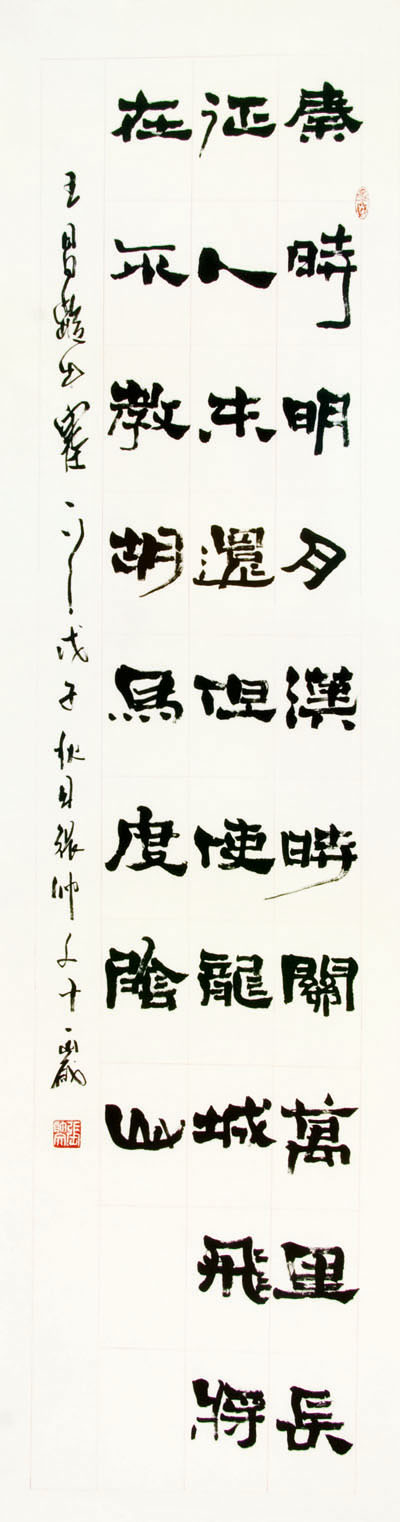 秦時明月漢時關萬里長
征人未還但使龍城飛將
在不教胡馬度陰山
王昌齡出塞一首戊子秋月張